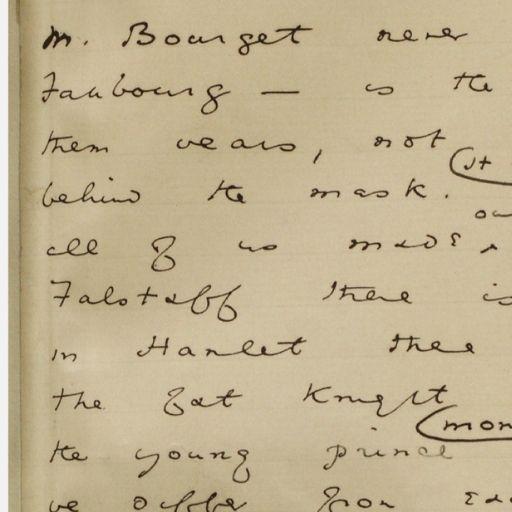 M. Bourget never
Faubourg — is the
them wears, not
(It
behind the mask.
all of us made
Falstaff there is
in Hamlet there
the fat Knight
(mon
the young prince
we differ from